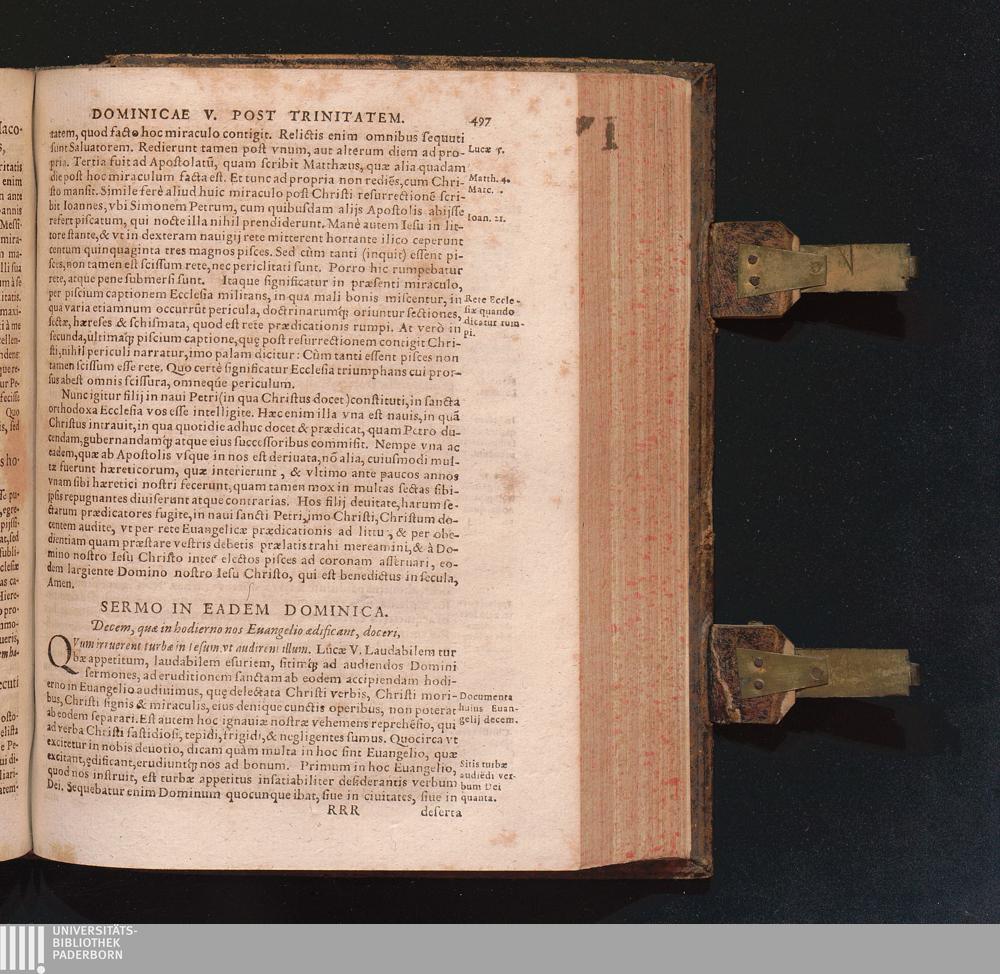 DOMINICAE V. POST TRINITATEM. 497
tatem, quod facto hoc miraculo contigit. Relictis enim omnibus sequuti
sunt Saluatorem. Redierunt tamen post vnum, aut alterum diem ad pro-
pria. Tertia fuit ad Apostolatũ, quam scribit Matthæus, quæ alia quadam
die post hoc miraculum facta est. Et tunc ad propria non rediẽs, cum Chri-
sto mansit. Simile ferè aliud huic miraculo post Christi resurrectionẽ scri-
bit Ioannes, vbi Simonem Petrum, cum quibusdam alijs Apostolis abijsse
refert piscatum, qui nocte illa nihil prendiderunt. Manè autem Iesu in lit-
tore stante, & vt in dexteram nauigij rete mitterent hortante ilico ceperunt
centum quinquaginta tres magnos pisces. Sed cùm tanti (inquit) essent pi-
sces, non tamen est scissum rete, nec periclitati sunt. Porro hic rumpebatur
rete, atque pene submersi sunt. Itaque significatur in præsenti miraculo,
per piscium captionem Ecclesia militans, in qua mali bonis miscentur, in
qua varia etiamnum occurrũt pericula, doctrinarumq́; oriuntur sectiones,
sectæ, hæreses & schismata, quod est rete prædicationis rumpi. At verò in
secunda, ultimaq́; piscium captione, quę post resurrectionem contigit Chri-
sti, nihil periculi narratur, imo palam dicitur: Cùm tanti essent pisces non
tamen scissum esse rete. Quo certè significatur Ecclesia triumphans cui pror-
sus abest omnis scissura, omneque periculum.
Nunc igitur filij in naui Petri (in qua Christus docet) constituti, in sancta
orthodoxa Ecclesia vos esse intelligite. Hæc enim illa vna est nauis, in quã
Christus intrauit, in qua quotidie adhuc docet & prædicat, quam Petro du-
cendam, gubernandamq́; atque eius successoribus commisit. Nempe vna ac
eadem, quæ ab Apostolis vsque in nos est deriuata, nõ alia, cuiusmodi mul-
tæ fuerunt hæreticorum, quæ interierunt, & vltimo ante paucos annos
vnam sibi hæretici nostri fecerunt, quam tamen mox in multas sectas sibi-
ipsis repugnantes diuiserunt atque contrarias. Hos filij deuitate, harum se-
ctarum prædicatores fugite, in naui sancti Petri, imo Christi, Christum do-
centem audite, vt per rete Euangelicæ prædicationis ad littus, & per obe-
dientiam quam præstare vestris debetis prælatis trahi mereamini, & à Do-
mino nostro Iesu Christo inter electos pisces ad coronam asseruari, eo-
dem largiente Domino nostro Iesu Christo, qui est benedictus in secula,
Amen.
Lucæ 5.
Matth. 4.
Marc. 1.
Ioan. 21.
Rete Eccle-
siæ quando
dicatur rum-
pi.
SERMO IN EADEM DOMINICA.
Decem, quæ in hodierno nos Euangelio ædificant, doceri,
QVum irruerent turbæ in Iesum, vt audirent illum. Lucæ V. Laudabilem tur
bæ appetitum, laudabilem esuriem, sitimq́; ad audiendos Domini
sermones, ad eruditionem sanctam ab eodem accipiendam hodi-
erno in Euangelio audiuimus, quę delectata Christi verbis, Christi mori-
bus, Christi signis & miraculis, eius denique cunctis operibus, non poterat
ab eodem separari. Est autem hoc ignauiæ nostræ vehemens reprehẽsio, qui
ad verba Christi fastidiosi, tepidi, frigidi, & negligentes sumus. Quocirca vt
excitetur in nobis deuotio, dicam quàm multa in hoc sint Euangelio, quæ
excitant, ędificant, erudiuntq́; nos ad bonum. Primum in hoc Euangelio,
quod nos instruit, est turbæ appetitus insatiabiliter desiderantis verbum
Dei. Sequebatur enim Dominum quocunque ibat, siue in ciuitates, siue in
Documenta
huius Euan-
gelij decem.
Sitis turbæ
audiẽdi ver-
bum Dei
quanta.
RRR deserta
UNIVERSITÄTS-
BIBLIOTHEK
PADERBORN